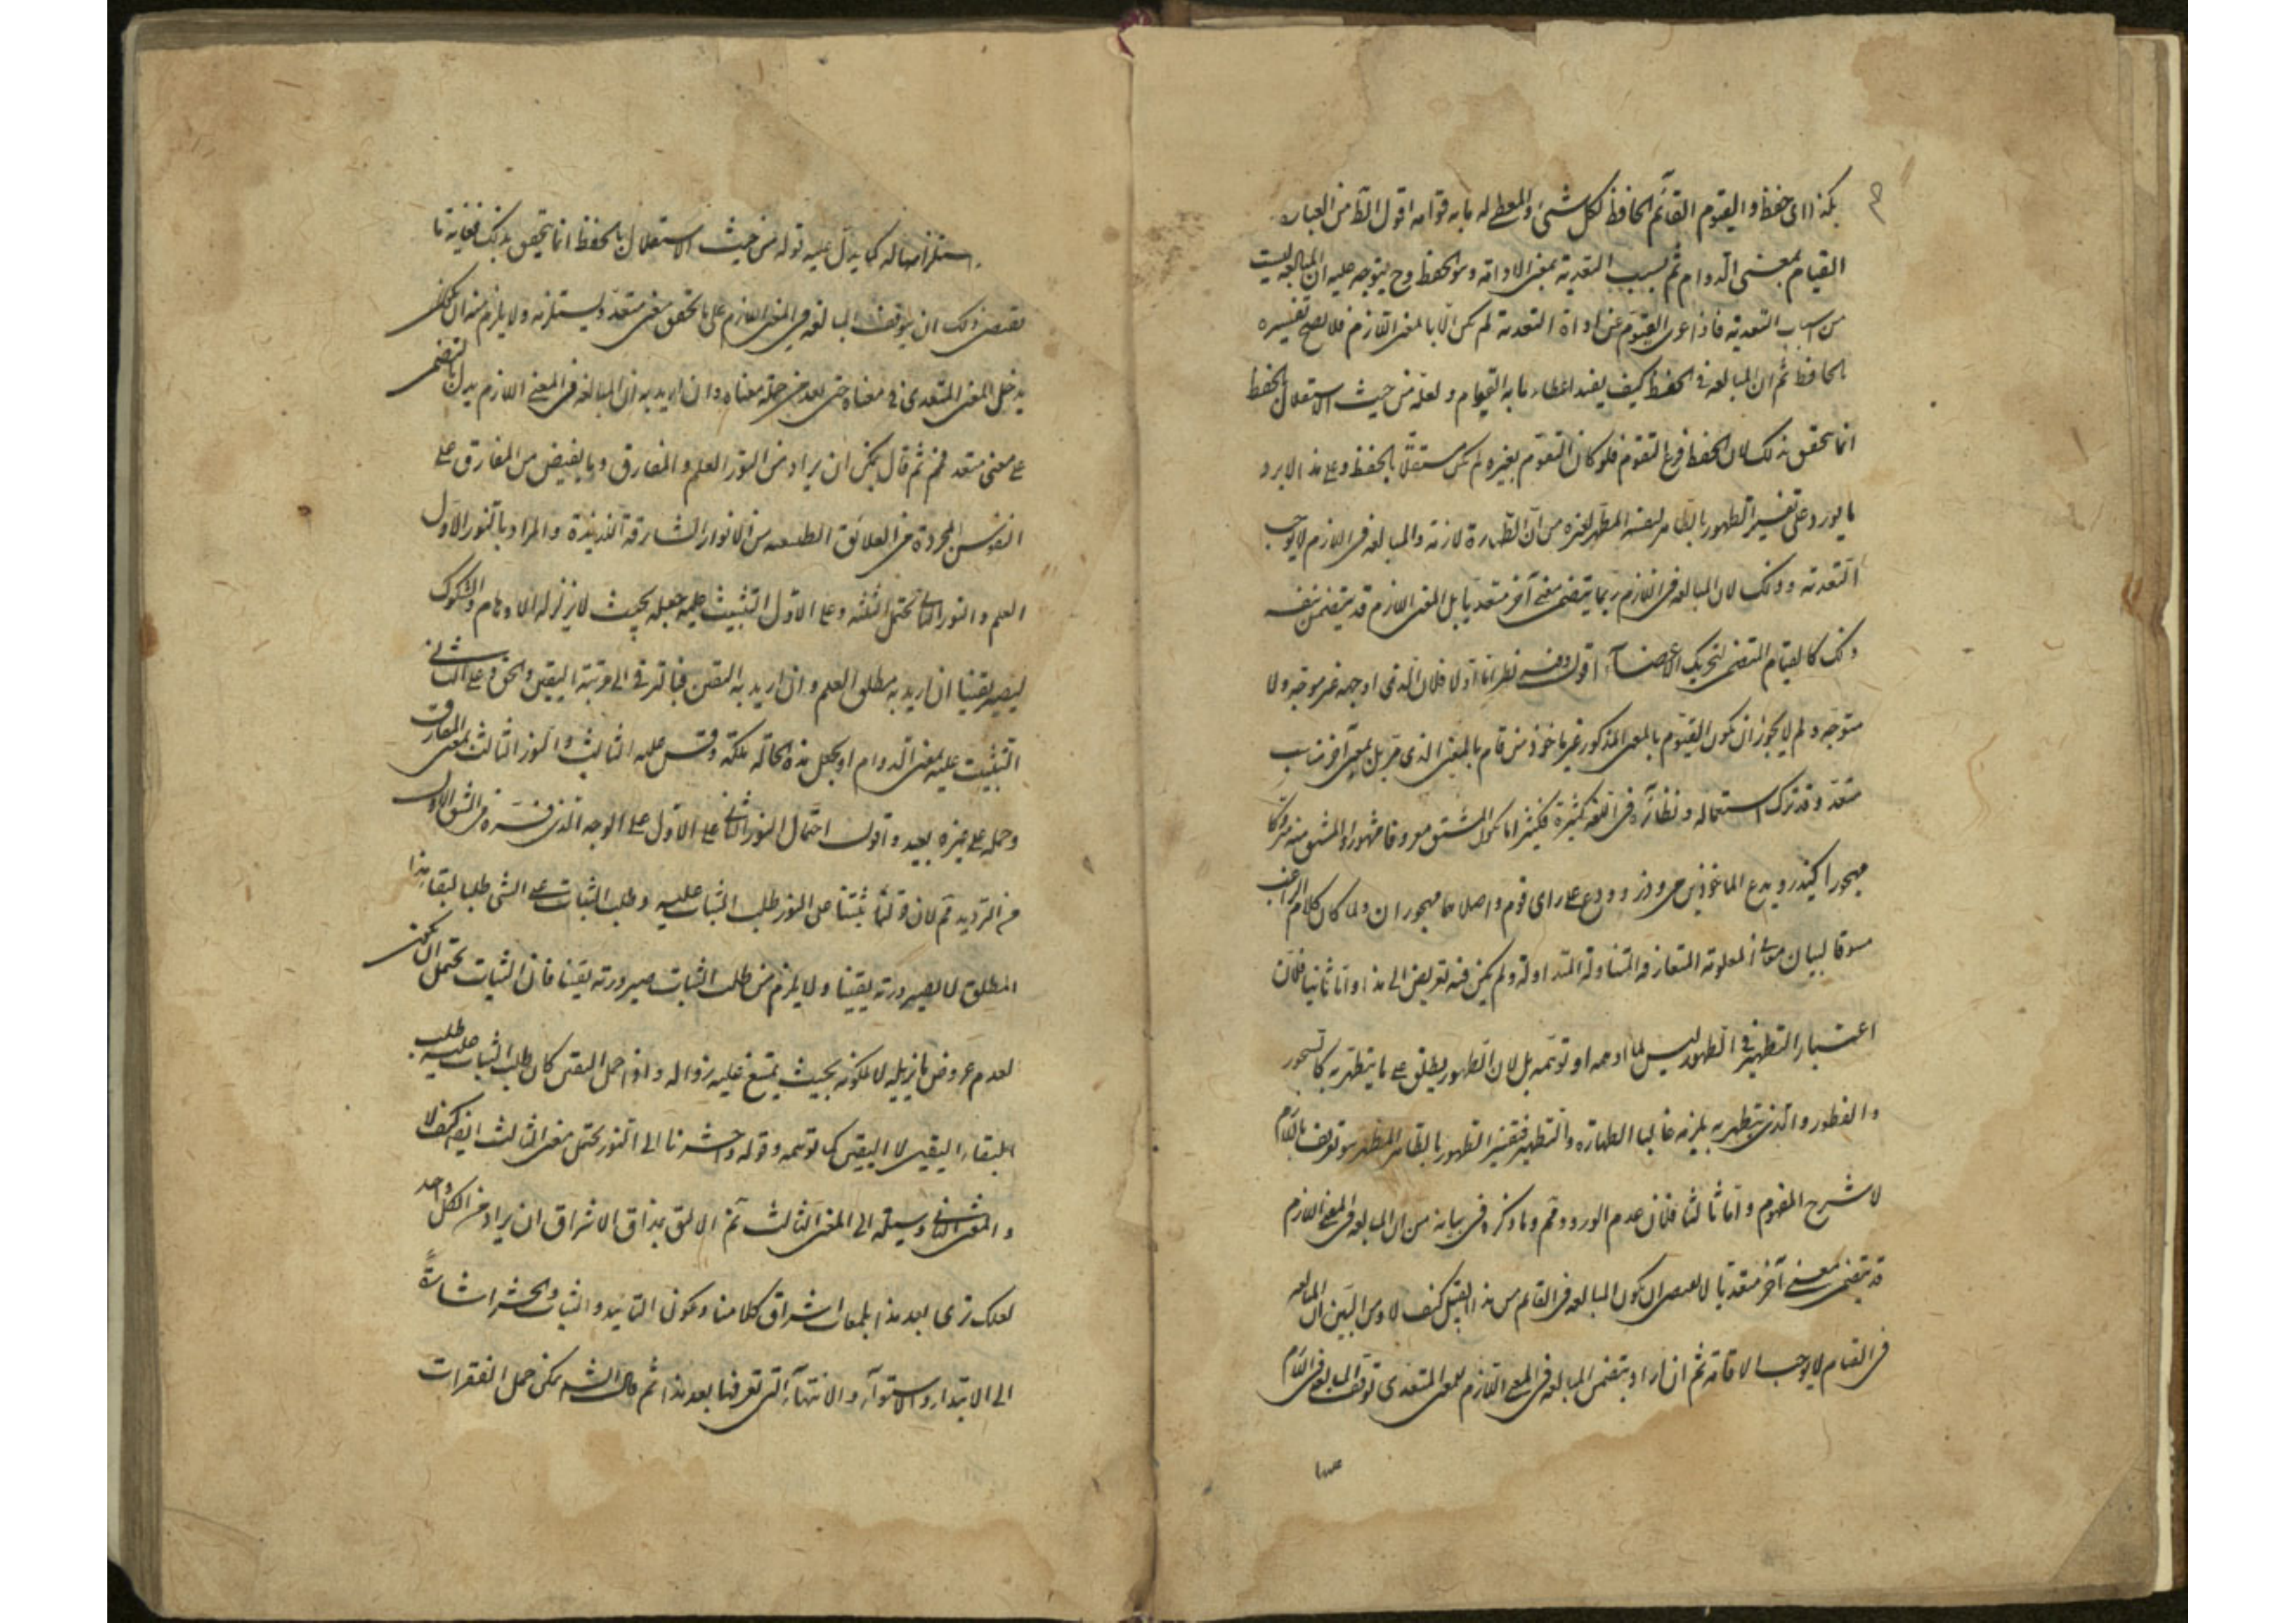 بكذا اى حفظ والقيوم القائم الحافظ لكل شئ والمعطى له ما به قوامه اقول الظ من العبارة
القيام بمعنى الدوام ثم بسبب التعدية بمعنى الادامة وهو الحفظ وح يتوجه عليه ان المبالغة ليست
من اسباب التعدية فاذا عرى القيوم عن اداة التعدية لم يكن الا بالمعنى اللازم فلا يصح تفسيره
بالحافظ ثم ان المبالغة فى الحفظ كيف يفيد اعطاء ما به القوام ولعله من حيث الاستقلال بالحفظ
انما يتحقق بذلك لان الحفظ فرع التقوم فلو كان التقوم بغيره لم يكن مستقلا بالحفظ وعلى هذا لا يرد
ما يورد على تفسير الطهور بالطاهر لنفسه المطهر لغيره من ان الطهارة لازمة والمبالغة فى اللازم لا يوجب
التعدية وذلك لان المبالغة فى اللازم ربما يتضمن معنى آخر متعديا بل المعنى اللازم قد يتضمن بنفسه
ذلك كالقيام المتضمن لتحريك الاعضاء اقول وفيه نظر اما اولا فلان الذى اوجهه غير موجه ولا
متوجه ولم لا يجوز ان يكون القيوم بالمعنى المذكور غير ماخوذ من قام بالمعنى الذى مر بل بمعنى آخر مناسب
متعد وقد ترك استعماله ونظائره فى اللغة كثيرة فكثيرا ما يكون المشتق معروفا مشهورا والمشتق منه متروكا
مهجورا كيذر ويدع الماخوذين من وذر وودع على راى قوم واصلاهما مهجوران ولما كان كلام الراغب
مسوقا لبيان معانى المعلومة المتعارفة المتناولة المتداولة ولم يكن فيه تعريض الى هذا واما ثانيا فلان
اعتبار التطهير فى الطهور ليس لما اوجهه او توهمه بل لان الطهور يطلق على ما يتطهر به كالسحور
والفطور والذى يتطهر به يلزمه غالبا الطهارة والتطهير فتفسير الطهور بالطاهر المطهر هو تعريف باللازم
لا شرح المفهوم واما ثالثا فلان عدم الورود ثم وما ذكره فى بيانه من ان المبالغة فى المعنى اللازم
قد يتضمن معنى آخر متعديا لا يقتضى ان يكون المبالغة فى القائم من هذا القبيل كيف لا ومن البين ان المبالغة
فى القيام لا يوجب الاقامة ثم ان اراد بتضمن المبالغة فى المعنى اللازم للمعنى المتعدى توقف المبالغة فى اللازم
استلزامها له كما يدل عليه قوله من حيث الاستقلال بالحفظ انما يتحقق بذلك فغاية ما
يقتضى ذلك ان يتوقف المبالغة فى المعنى اللازم على تحقق معنى متعد ويستلزمه ولا يلزم منه ان يكون
يدخل المعنى المتعدى فى معناه حتى يعد من جملة معناه وان اريد به ان المبالغة فى المعنى اللازم يدل بالتضمن
على معنى متعد فمم ثم قال يمكن ان يراد من النور العلم والمفارق وما يفيض من المفارق على
النفوس المجردة عن العلائق الطبيعية من الانوار الشارقة اللذيذة والمراد بالنور الاول
العلم والنور الثانى يحتمل الثلثة وعلى الاول التثبيت عليه جعله بحيث لا يزلزله الاوهام والشكوك
ليصير يقينا ان اريد به مطلق العلم وان اريد به اليقين فبالترقى الى مرتبة اليقين والحق وعلى الثانى
التثبيت عليه بمعنى الدوام او بجعل هذه الحالة ملكة وقس عليه الثالث والنور الثالث بمعنى المفارق
وحمله على غيره بعيد واقول احتمال النور الثانى على الاول على الوجه الذى فسره فى الشق الاول
من الترديد ثم لان قولنا ثبتنا على النور طلب الثبات عليه وطلب الثبات على الشئ طلب لبقاء هذا
المطلق لا لصيرورته يقينا ولا يلزم من طلب الثبات صيرورته يقينا فان الثبات يحتمل ان يكون
لعدم عروض ما يزيله لا لكونه بحيث يمتنع عليه زواله واذا حمل اليقين كان طلب الثبات عليه طلب
لبقاء اليقين لا اليقين كما توهمه وقوله واحشرنا الى النور يحتمل معنى الثالث ايضا كيف لا
والمعنى الثانى وسيلة الى المعنى الثالث ثم الاليق بمذاق الاشراق ان يراد من الكل واحد
لعلك ترى بعد هذا بلمعات اشراق كلامنا ويكون التاييد والثبات والحشر اشارة
الى الابتداء والاستواء والانتهاء التى تعرفها بعد هذا ثم قال الش يمكن حمل الفقرات